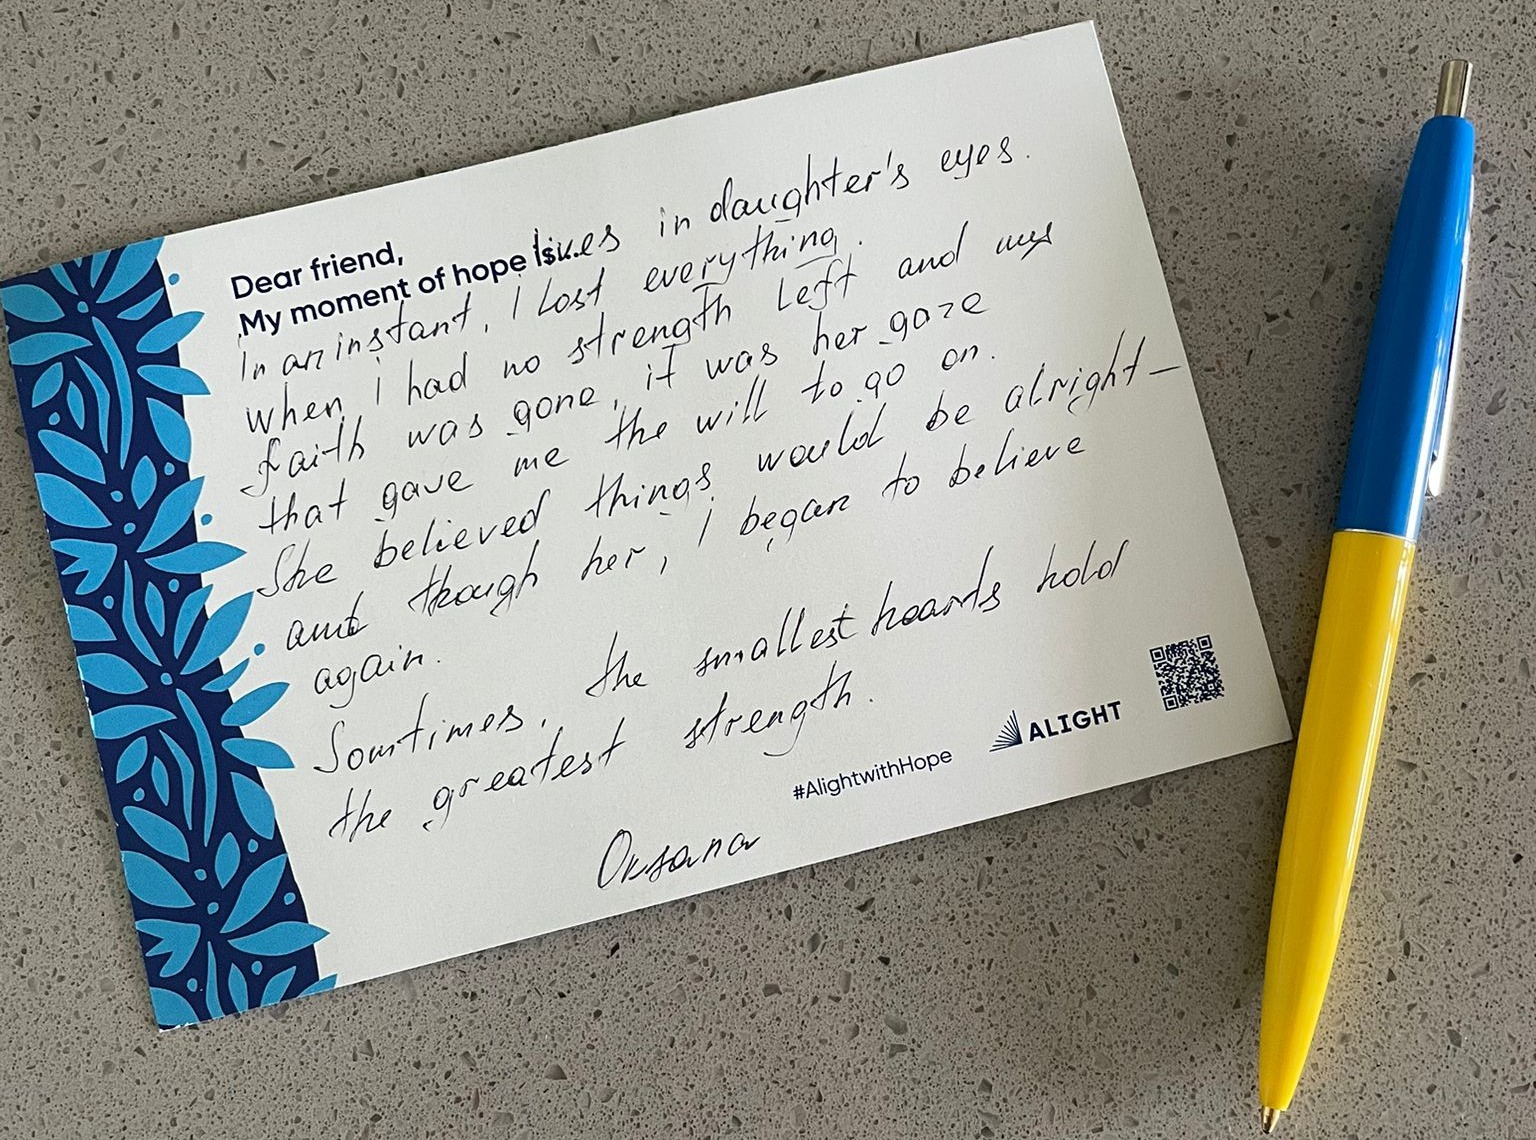 Dear friend,
My moment of hope is... lives in daughter's eyes.
In an instant, I Lost everything.
when I had no strength left and my
faith was gone, it was her gaze
that gave me the will to go on.
She believed things would be alright—
and though her, I began to believe
again.
Sometimes, the smallest hearts hold
the greatest strength.
Oksana
#AlightwithHope
ALIGHT